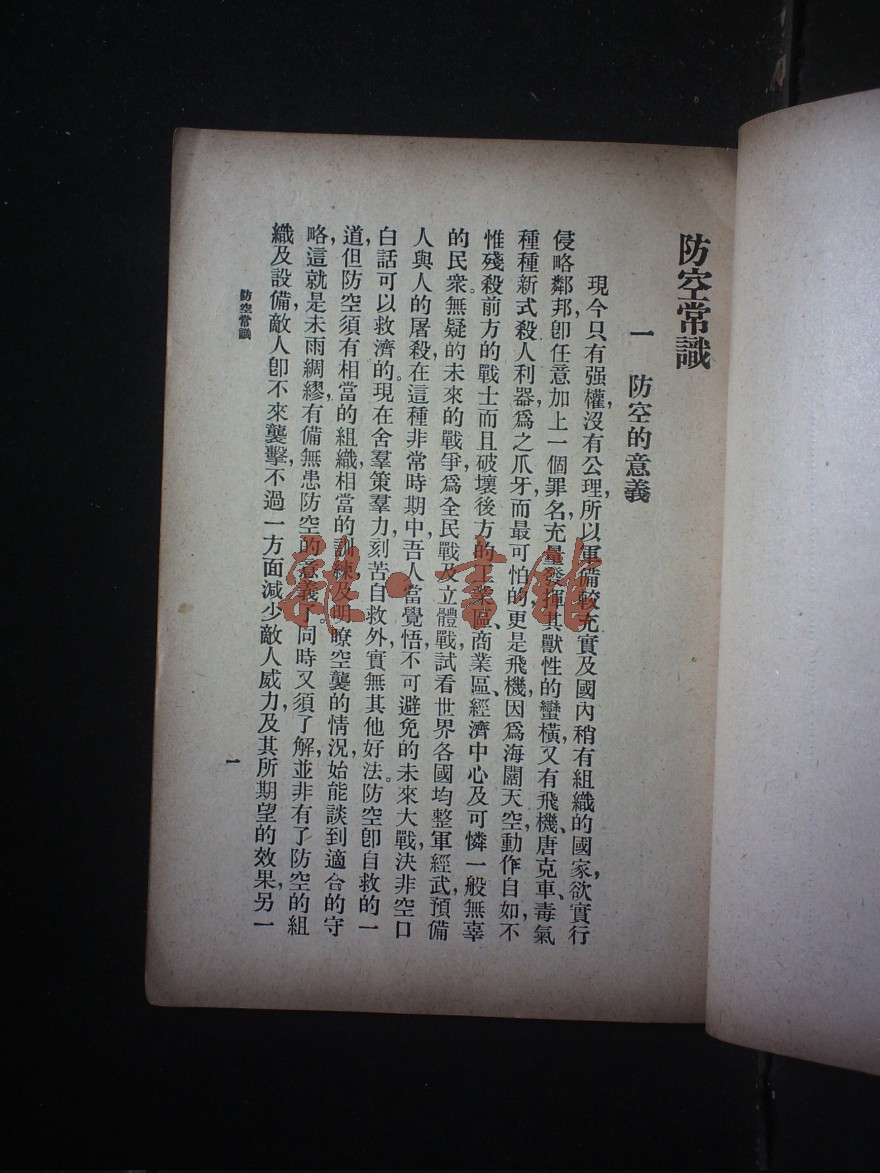 防空常識
一　防空的意義
現今只有强權，沒有公理，所以軍備較充實及國內稍有組織的國家，欲實行
侵略鄰邦，卽任意加上一個罪名，充量發揮其獸性的蠻橫，又有飛機、唐克車、毒氣
種種新式殺人利器，爲之爪牙，而最可怕的更是飛機，因爲海闊天空，動作自如，不
惟殘殺前方的戰士，而且破壞後方的工業區、商業區、經濟中心及可憐一般無辜
的民衆。無疑的未來的戰爭，爲全民戰及立體戰，試看世界各國均整軍經武，預備
人與人的屠殺。在這種非常時期中，吾人當覺悟，不可避免的未來大戰，決非空口
白話可以救濟的。現在舍羣策羣力，刻苦自救外，實無其他好法。防空卽自救的一
道，但防空須有相當的組織，相當的訓練，及明瞭空襲的情況，始能談到適合的守
略，這就是未雨綢繆，有備無患防空的意義。同時又須了解，並非有了防空的組
織及設備，敵人卽不來襲擊，不過一方面減少敵人威力，及其所期望的效果，另一
防空常識
一
雜·書館